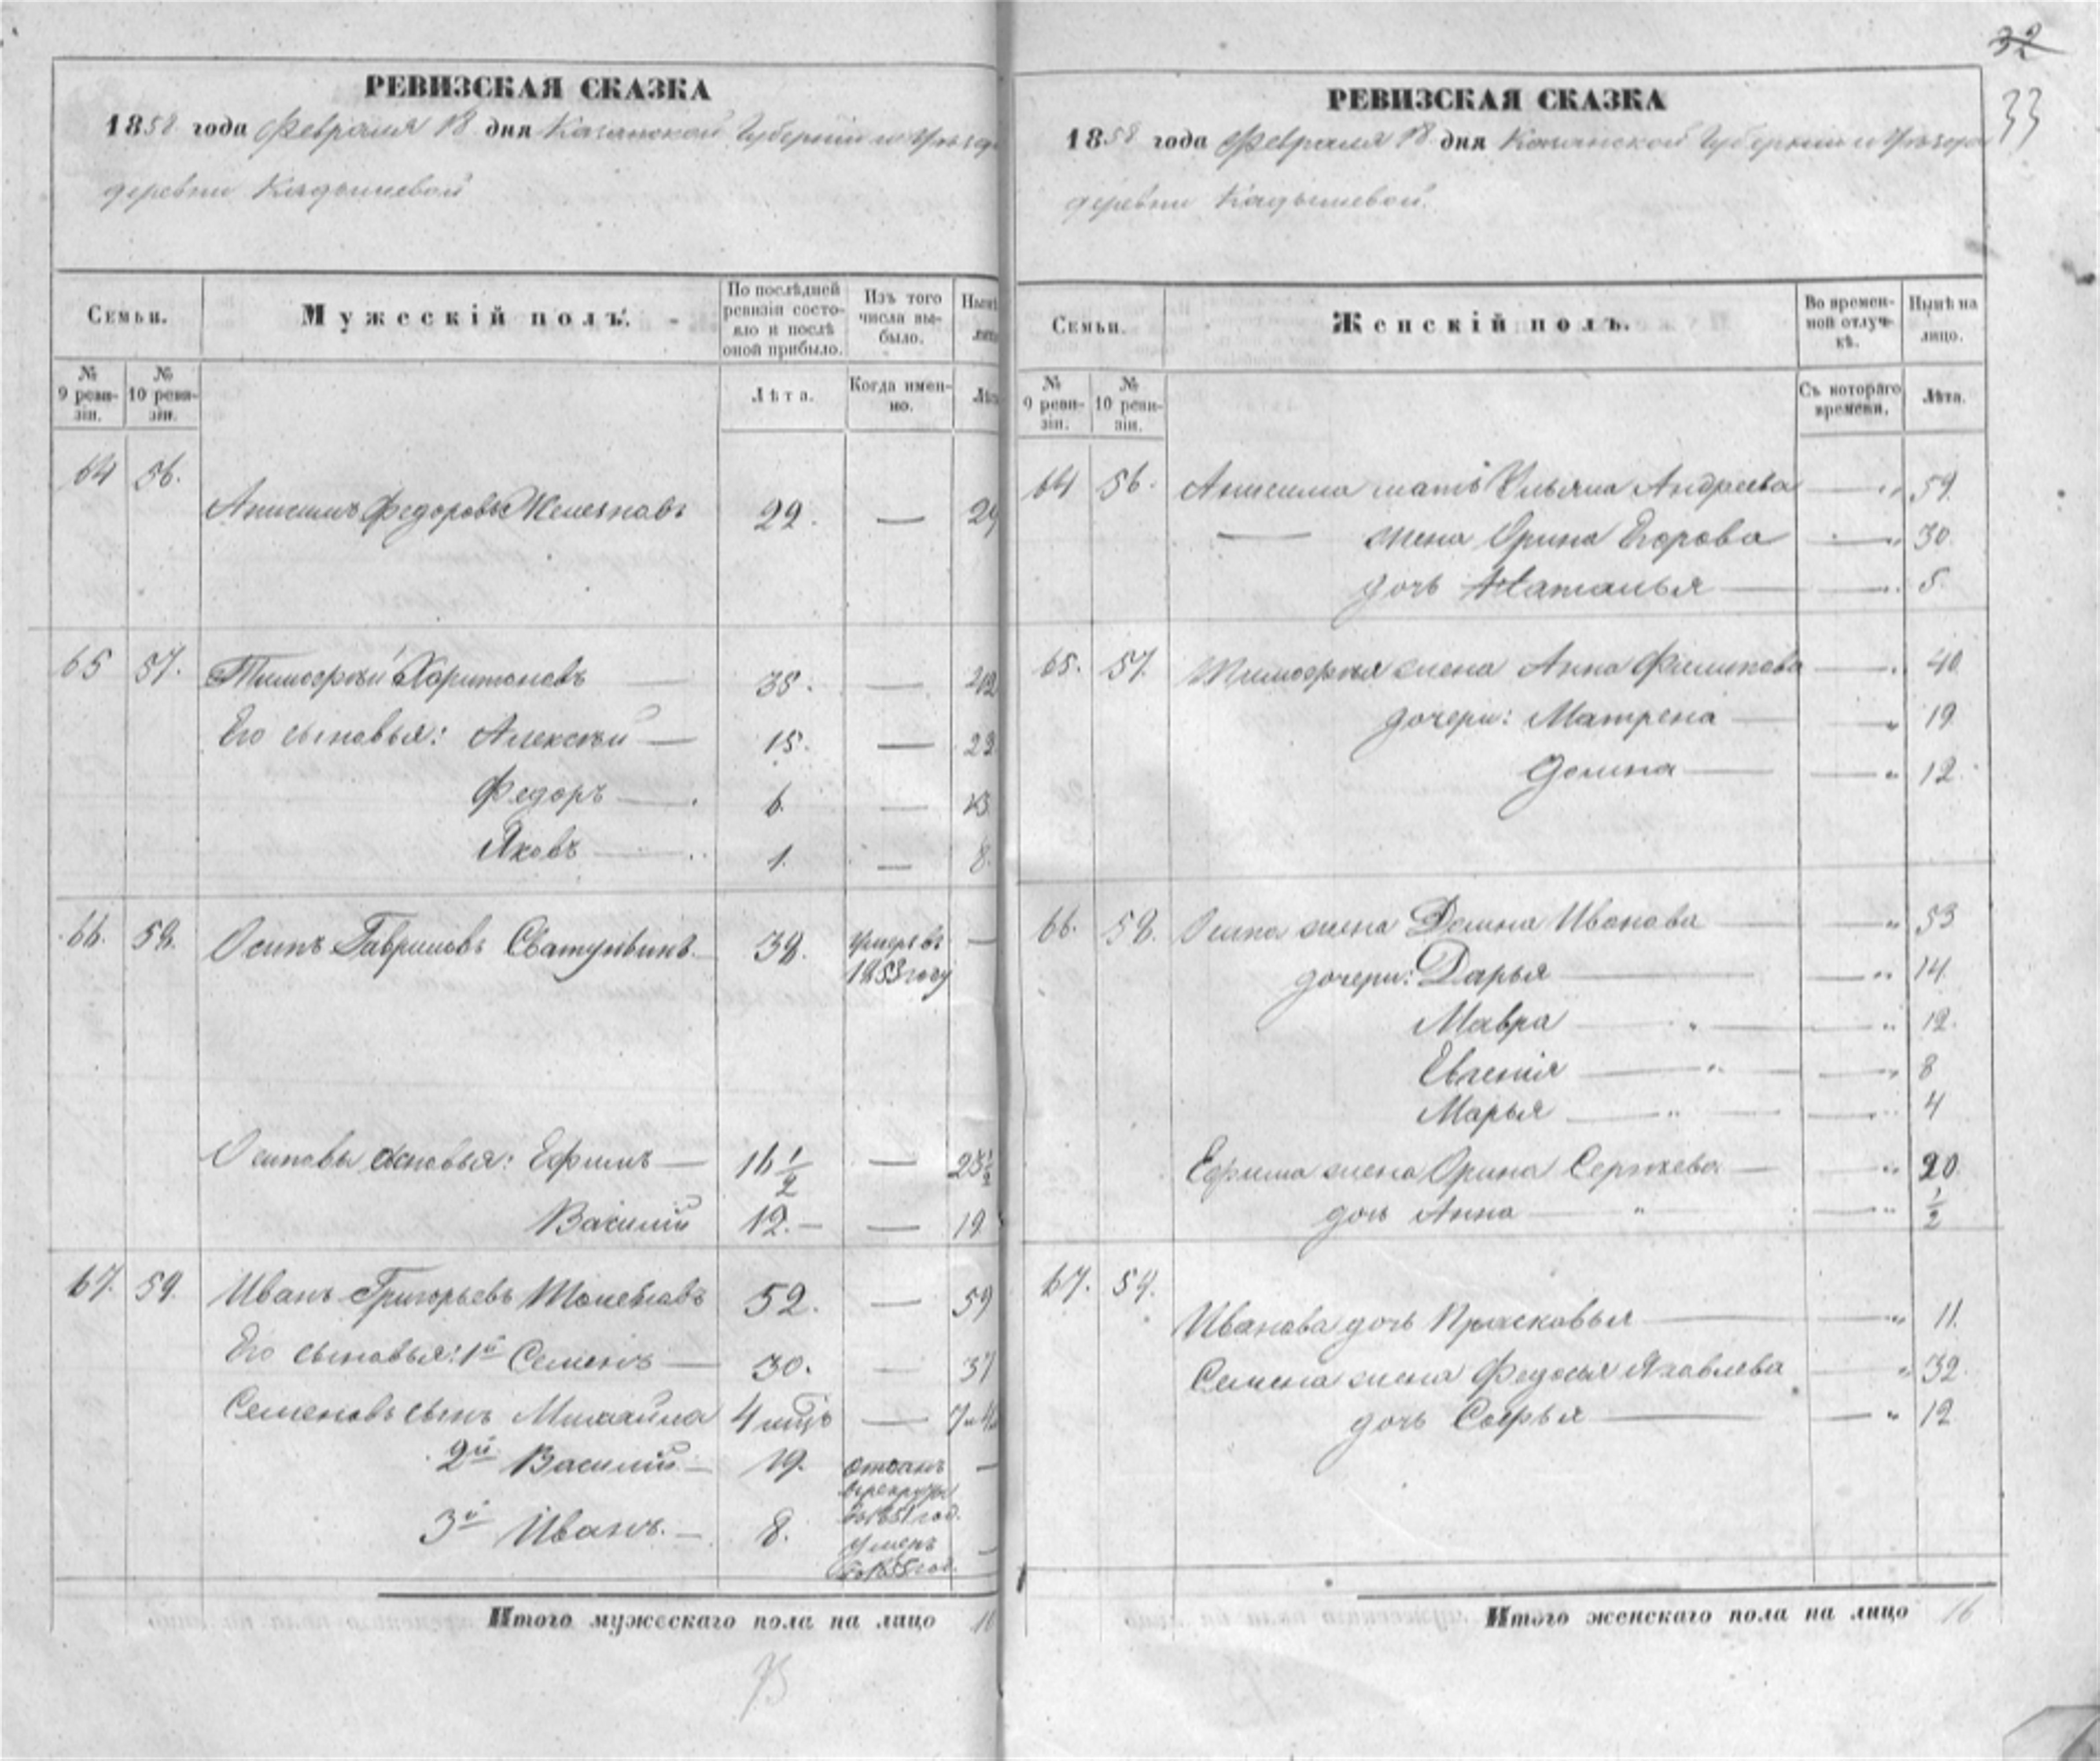 32
33
РЕВИЗСКАЯ СКАЗКА
1858 года Февраля 18 дня Казанской Губернии и Уѣзда
деревни Кадышевой
Семьи.
Мужескій полъ.
По послѣдней ревизіи состояло и послѣ оной прибыло.
Изъ того числа выбыло.
№ 9 ревизіи.
№ 10 ревизіи.
Лѣта.
Когда именно.
64 56. Анисимъ Федоровъ 22. — 29
65 57. Тимофей Харитоновъ — 35. — 42
Его сыновья: Алексѣй — 15. — 22
Федоръ — 6. — 13
Яковъ — 1. — 8.
66. 58. Осипъ Гавриловъ 38. умеръ въ —
1853 году
Осиповы сыновья: Ефимъ — 16 1/2 — 23 1/2
Василій 12. — — 19
67. 59. Иванъ Григорьевъ 52. — 59
Его сыновья: 1й Семенъ — 30. — 37
Семеновъ сынъ Михайла 4 — 7
2й Василій — 19. отданъ —
в рекруты
в 1851 год.
3й Иванъ. — 8. умеръ —
в 1855 год.
Итого мужескаго пола на лицо 10
РЕВИЗСКАЯ СКАЗКА
1858 года Февраля 18 дня Казанской Губернии и Уѣзда
деревни Кадышевой.
Семьи.
Женскій полъ.
Во временной отлучкѣ.
Нынѣ на лицо.
№ 9 ревизіи.
№ 10 ревизіи.
Съ котораго времени.
Лѣта.
64 56. Анисима мать Ульяна Андреева — „ 59.
— жена Орина Егорова — „ 30.
дочь Наталья — — „ 5.
65. 57. Тимофея жена Анна Филипова — „ 40.
дочери: Матрена — — „ 19
Домна — — „ 12.
66. 58. Осипа жена Домна Иванова — — „ 53
дочери: Дарья — — „ 14.
Мавра — „ — — „ 12.
Евгенія — „ — — „ 8
Марья — „ — — „ 4
Ефима жена Орина Сергѣева — — „ 20
дочь Анна — „ — „ 1/2
67. 59.
Иванова дочь Прасковья — — „ 11.
Семена жена Федосья Яковлева — „ 32.
дочь Софья — — „ 12
Итого женскаго пола на лицо 16